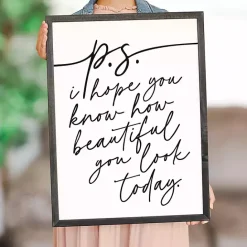 p.s.
i hope you
know how
beautiful
you look
today.